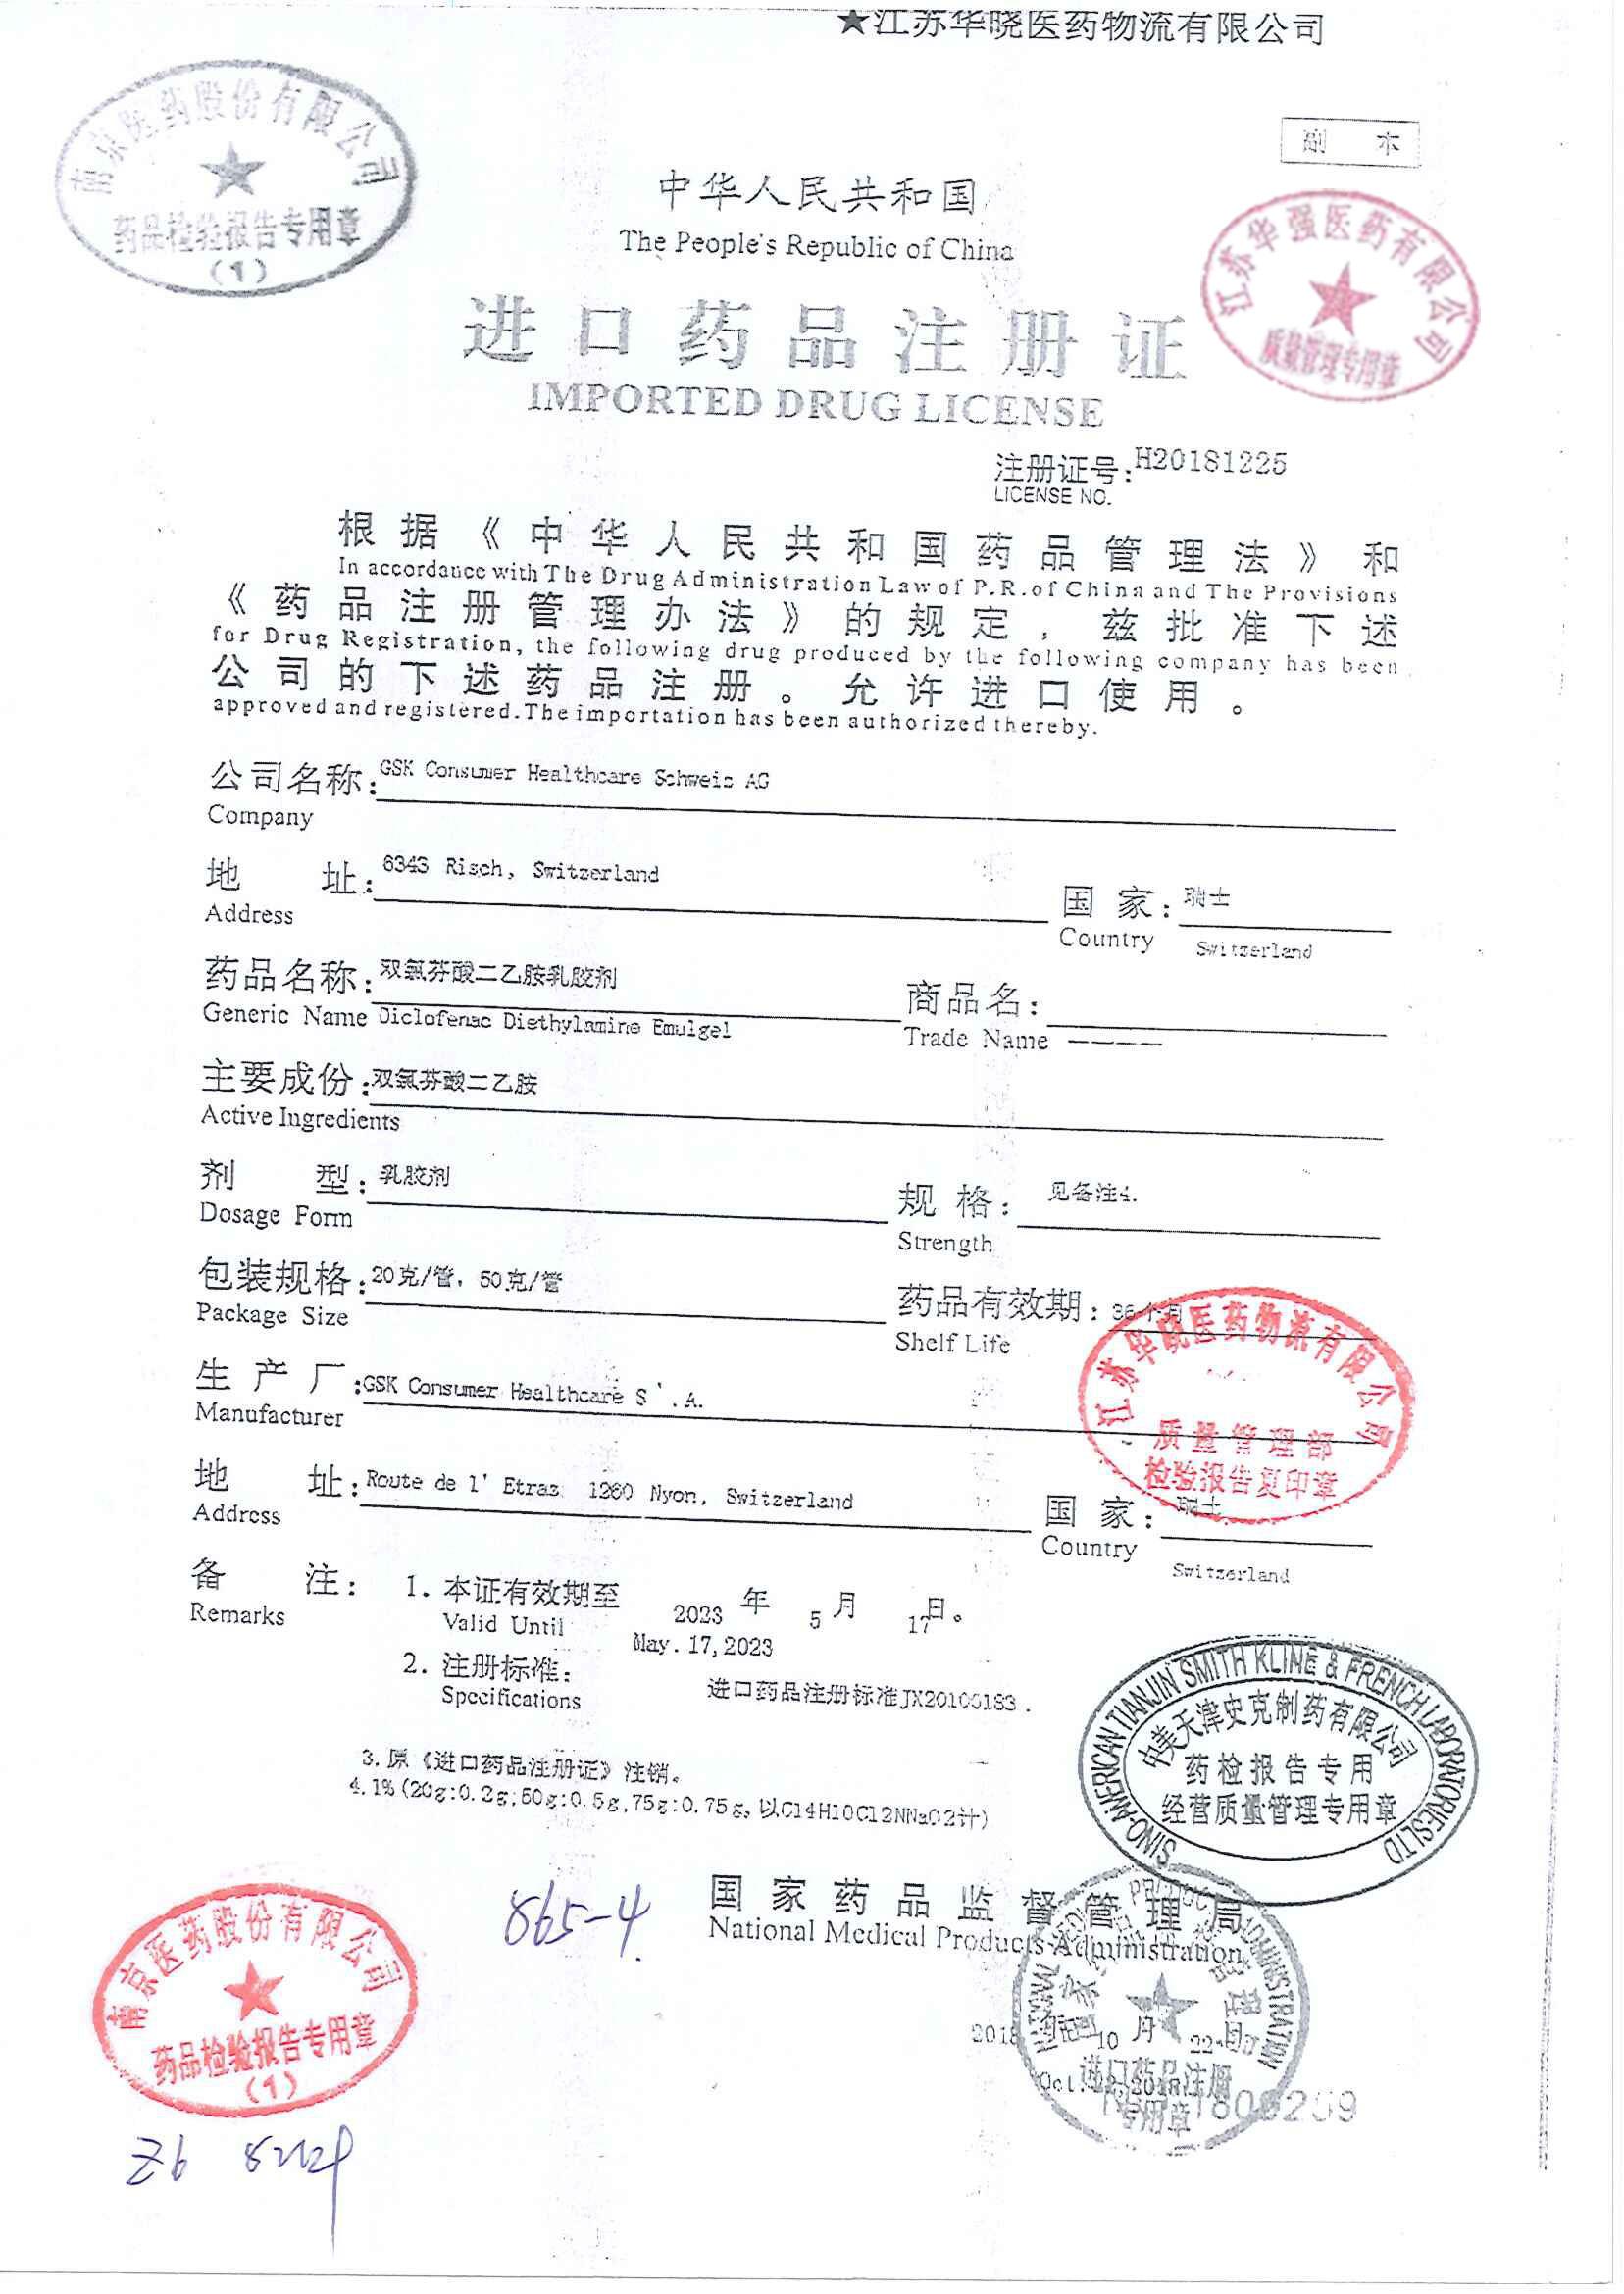 ★江苏华晓医药物流有限公司
南京医药股份有限公司
药品检验报告专用章
(1)
副 本
中华人民共和国
The People's Republic of China
江苏华强医药有限公司
质量管理专用章
进口药品注册证
IMPORTED DRUG LICENSE
注册证号:H20181225
LICENSE NO.
根据《中华人民共和国药品管理法》和
In accordance with The Drug Administration Law of P.R.of China and The Provisions
《药品注册管理办法》的规定,兹批准下述
for Drug Registration, the following drug produced by the following company has been
公司的下述药品注册。允许进口使用。
approved and registered.The importation has been authorized thereby.
公司名称:GSK Consumer Healthcare Schweiz AG
Company
地 址:6343 Risch, Switzerland 国 家:瑞士
Address Country Switzerland
药品名称:双氯芬酸二乙胺乳胶剂 商品名:
Generic Name Diclofenac Diethylamine Emulgel Trade Name ————
主要成份:双氯芬酸二乙胺
Active Ingredients
剂 型:乳胶剂 规 格: 见备注4.
Dosage Form Strength
包装规格:20克/管, 50克/管 药品有效期:36个月
Package Size Shelf Life
江苏华晓医药物流有限公司
质量管理部
检验报告复印章
生 产 厂:GSK Consumer Healthcare S .A.
Manufacturer
地 址:Route de l' Etraz 1260 Nyon, Switzerland 国 家:瑞士
Address Country
Switzerland
备 注: 1. 本证有效期至 2023 年 5 月 17日。
Remarks Valid Until May. 17, 2023
2. 注册标准: 进口药品注册标准JX20100183.
Specifications
3. 原《进口药品注册证》注销。
4. 1% (20g:0.2g;50g:0.5g,75g:0.75g, 以C14H10Cl2NNaO2计)
SINO-AMERICAN TIANJIN SMITH KLINE & FRENCH LABORATORIES LTD
中美天津史克制药有限公司
药检报告专用
经营质量管理专用章
865-4
国家药品监督管理局
National Medical Products Administration
2018 年 10 月 22 日
进口药品注册
专用章
南京医药股份有限公司
药品检验报告专用章
(1)